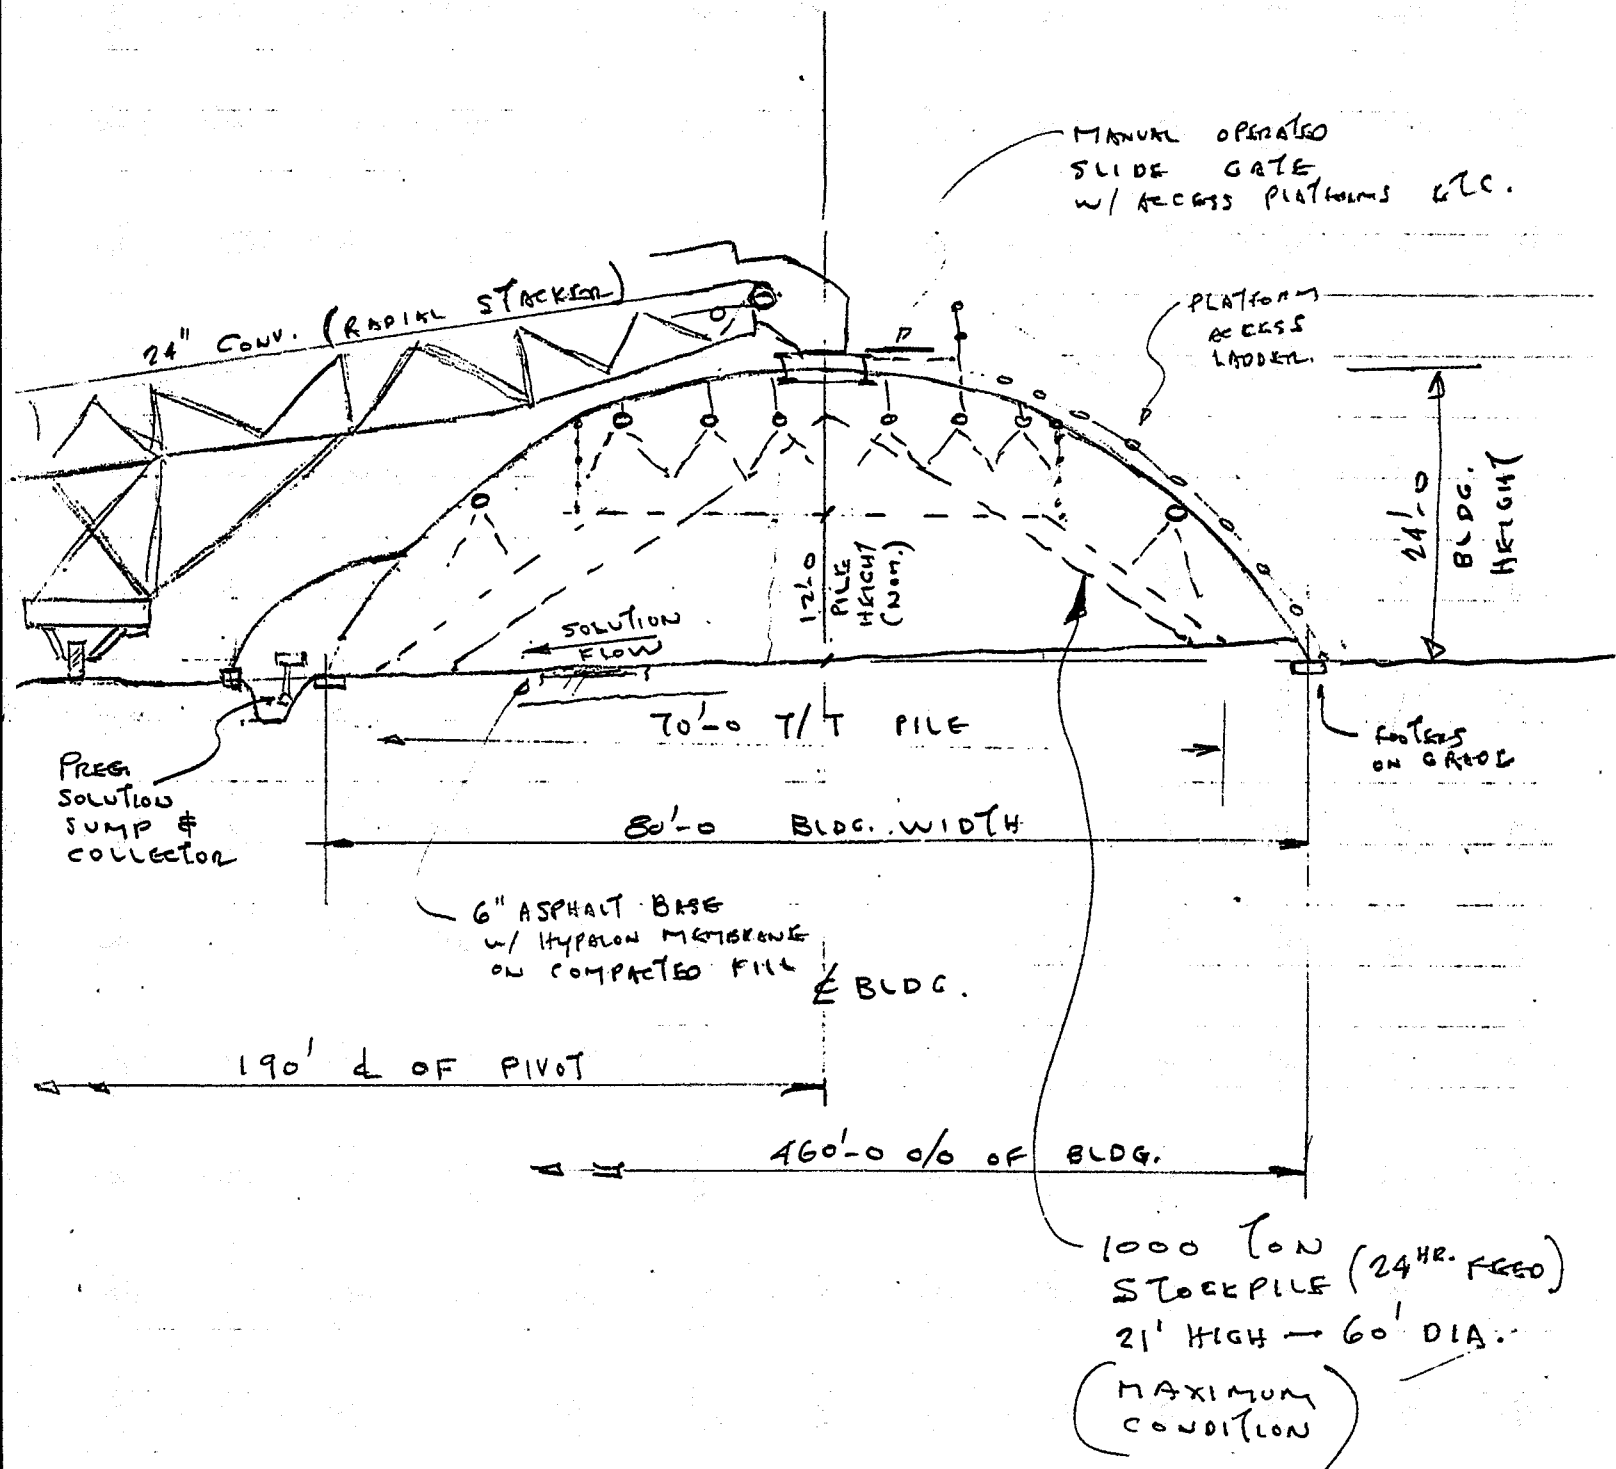 MANUAL OPERATED
SLIDE GATE
W/ ACCESS PLATFORMS ETC.
24" CONV. (RADIAL STACKER)
PLATFORM
ACCESS
LADDER.
24'-0
BLDG.
HEIGHT
12'-0
PILE
HEIGHT
(NOM.)
SOLUTION
FLOW
70'-0 T/T PILE
FOOTERS
ON GRADE
PREG.
SOLUTION
SUMP &
COLLECTOR
80'-0 BLDG. WIDTH
6" ASPHALT BASE
W/ HYPALON MEMBRANE
ON COMPACTED FILL
℄ BLDG.
190' ℄ OF PIVOT
460'-0 O/O OF BLDG.
1000 TON
STOCKPILE (24 HR. FEED)
21' HIGH — 60' DIA.
(MAXIMUM
CONDITION)